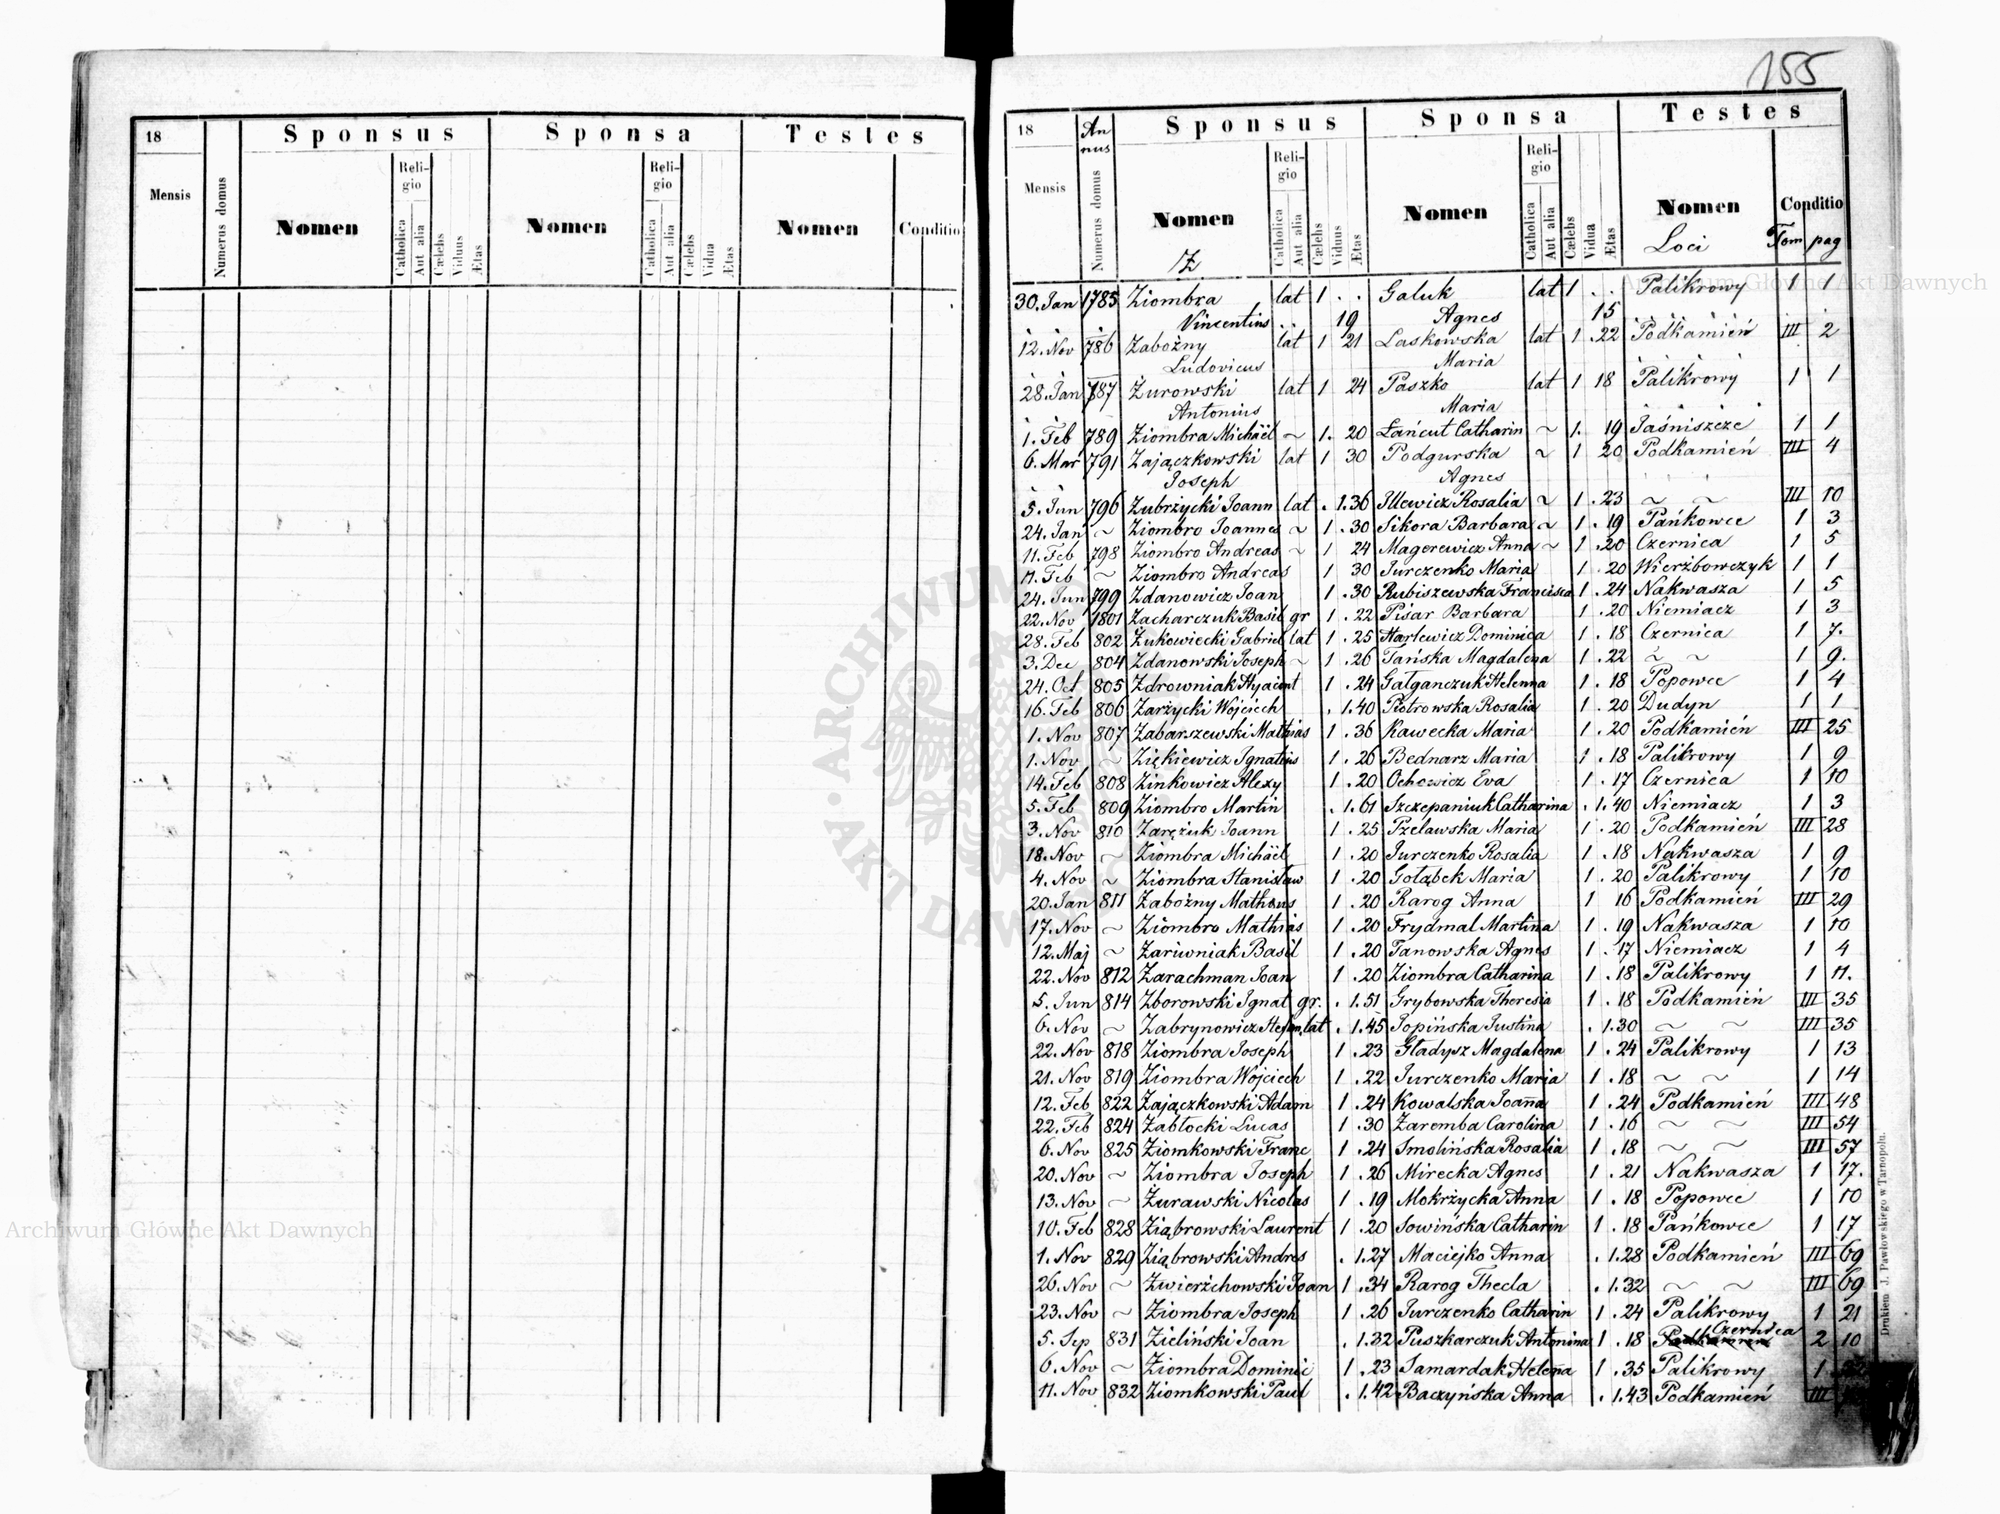 155
18 Sponsus Sponsa Testes
Mensis Numerus domus Nomen Religio Catholica Aut alia Cælebs Viduus Ætas Nomen Religio Catholica Aut alia Cælebs Vidua Ætas Nomen Conditio
18 Annus Sponsus Sponsa Testes
Mensis Numerus domus Nomen Religio Catholica Aut alia Cælebs Viduus Ætas Nomen Religio Catholica Aut alia Cælebs Vidua Ætas Nomen Conditio
Z Loci Tom pag
30. Jan 1785 Ziombra lat 1 . . Galuk lat 1 . . Palikrowy 1 1
Vincentius . . 19 Agnes 15
12. Nov 786 Zabożny lat 1 21 Laskowska lat 1 . 22 Podkamień III 2
Ludovicus Maria
28. Jan 787 Żurowski lat 1 24 Paszko lat 1 18 Palikrowy 1 1
Antonius Maria
1. Feb 789 Ziombra Michäel ~ 1. 20 Łańcut Catharin ~ 1. 19 Jaśniszcze 1 1
6. Mar 791 Zajączkowski lat 1 30 Podgurska ~ 1 20 Podkamień III 4
Joseph Agnes
5. Jun 796 Zubrzycki Joann lat . 1. 36 Illewicz Rosalia ~ 1 . 23 ~ ~ III 10
24. Jan ~ Ziombro Joannes ~ 1 . 30 Sikora Barbara ~ 1 . 19 Pańkowce 1 3
11. Feb 798 Ziombro Andreas ~ 1 24 Magerewicz Anna ~ 1 . 20 Czernica 1 5
11. Feb ~ Ziombro Andreas 1 30 Jurczenko Maria 1 . 20 Wierzbowczyk 1 1
24. Jun 799 Zdanowicz Joan 1 . 30 Rubiszewska Francisca 1 . 24 Nakwasza 1 5
22. Nov 1801 Zacharczuk Basil gr 1 . 22 Pisar Barbara 1 . 20 Niemiacz 1 3
28. Feb 802 Żukowiecki Gabriel lat 1 . 25 Harlewicz Dominica 1 . 18 Czernica 1 7.
3. Dec 804 Zdanowski Joseph ~ 1 . 26 Tańska Magdalena 1 . 22 ~ ~ 1 9.
24. Oct 805 Zdrowniak Hyacint 1 . 24 Gałganczuk Helenna 1 . 18 Popowce 1 4
16. Feb 806 Zarzycki Wojciech . 1. 40 Piotrowska Rosalia 1 . 20 Dudyn 1 1
1. Nov 807 Zabarszewski Mathias 1 . 36 Kawecka Maria 1 . 20 Podkamień III 25
1. Nov ~ Ziękiewicz Ignatius 1 . 26 Bednarz Maria 1 . 18 Palikrowy 1 9
14. Feb 808 Zinkowicz Alexy 1 . 20 Ochowicz Eva 1 . 17 Czernica 1 10
5. Feb 809 Ziombro Martin . 1. 61 Szczepaniuk Catharina . 1. 40 Niemiacz 1 3
3. Nov 810 Zarężuk Joann 1 . 25 Pzelawska Maria 1 . 20 Podkamień III 28
18. Nov ~ Ziombra Michäel 1 . 20 Jurczenko Rosalia 1 . 18 Nakwasza 1 9
4. Nov ~ Ziombra Stanisław 1 . 20 Gołąbek Maria 1 . 20 Palikrowy 1 10
20. Jan 811 Zabożny Matheus 1 . 20 Rarog Anna 1 16 Podkamień III 29
17. Nov ~ Ziombro Mathias 1 . 20 Frydmal Martina 1 . 19 Nakwasza 1 10
12. Maj ~ Zariwniak Basil 1 . 20 Janowska Agnes 1 . 17 Niemiacz 1 4
22. Nov 812 Zarachman Joan 1 . 20 Ziombra Catharina 1 . 18 Palikrowy 1 11.
5. Jun 814 Zborowski Ignat gr. . 1. 51 Grybowska Theresia 1 . 18 Podkamień III 35
6. Nov ~ Zabrynowicz Stefan lat . 1. 45 Jopińska Justina . 1. 30 ~ ~ III 35
22. Nov 818 Ziombra Joseph 1 . 23 Gładysz Magdalena 1 . 24 Palikrowy 1 13
21. Nov 819 Ziombra Wojciech 1 . 22 Jurczenko Maria 1 . 18 ~ ~ 1 14
12. Feb 822 Zajączkowski Adam 1 . 24 Kowalska Joanna 1 . 24 Podkamień III 48
22. Feb 824 Zabłocki Lucas 1 . 30 Zaremba Carolina 1 . 16 ~ ~ III 54
6. Nov 825 Ziomkowski Franc 1 . 24 Smolińska Rosalia 1 . 18 ~ ~ III 57
20. Nov ~ Ziombra Joseph 1 . 26 Mirecka Agnes 1 . 21 Nakwasza 1 17.
13. Nov ~ Żurawski Nicolas 1 . 19 Mokrzycka Anna 1 . 18 Popowce 1 10
10. Feb 828 Ziąbrowski Laurent 1 . 20 Sowińska Catharin 1 . 18 Pańkowce 1 17
1. Nov 829 Ziąbrowski Andres . 1. 27 Maciejko Anna . 1. 28 Podkamień III 69
26. Nov ~ Zwierzchowski Joan 1 . 34 Rarog Thecla . 1. 32 ~ ~ III 69
23. Nov ~ Ziombra Joseph 1 . 26 Jurczenko Catharin 1 . 24 Palikrowy 1 21
5. Sep 831 Zieliński Joan . 1. 32 Puszkarczuk Antonina 1 . 18 Podkamień Czernica 2 10
6. Nov ~ Ziombra Dominic 1 . 23 Samardak Helena 1 . 35 Palikrowy 1
11. Nov 832 Ziomkowski Paul . 1. 42 Baczyńska Anna . 1. 43 Podkamień III
Drukiem J. Pawłowskiego w Tarnopolu.
Archiwum Główne Akt Dawnych
Archiwum Główne Akt Dawnych
ARCHIWUM · AKT DAWNYCH